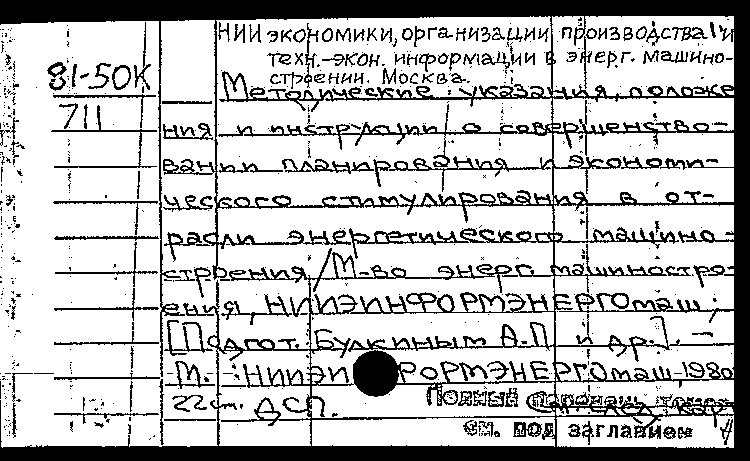 НИИ экономики, организации производства и
техн.-экон. информации в энерг. машино-
строении. Москва.
81-50К
711
Методические указания, положе
ния и инструкции о совершенство-
вании планирования и экономи-
ческого стимулирования в от-
расли энергетического машино-
строения / М-во энерг. машиностро-
ения, НИИЭИНФОРМЭНЕРГОмаш;
[Подгот. Булкиным А.П и др.]. —
М.: НИИЭИ РОРМЭНЕРГОмаш, 1980
22 см. ДСП.
Полный перечень
см. под заглавием